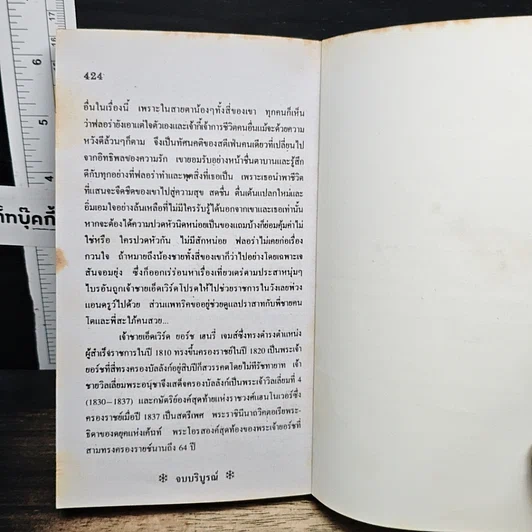 424
อื่นในเรื่องนี้ เพราะในสายตาน้องๆทั้งสี่ของเขา ทุกคนก็เห็น
ว่าฟลอร่ายังเอาแต่ใจตัวเองและเจ้ากี้เจ้าการชีวิตคนอื่นแม้จะด้วยความ
หวังดีล้วนๆก็ตาม จึงเป็นทัศนคติของสตีเฟ่นคนเดียวที่เปลี่ยนไป
จากอิทธิพลของความรัก เขายอมรับอย่างหน้าชื่นตาบานและรู้สึก
ดีกับทุกอย่างที่ฟลอร่าทำและพูดสิ่งที่เธอเป็น เพราะเธอนำพาชีวิต
ที่แสนจะจืดชืดของเขาไปสู่ความสุข สดชื่น ตื่นเต้นแปลกใหม่และ
อิ่มเอมใจอย่างล้นเหลือที่ไม่มีใครรับรู้ได้นอกจากเขาและเธอเท่านั้น
หากจะต้องได้ความปวดหัวนิดหน่อยเป็นของแถมบ้างก็ย่อมคุ้มค่าไม่
ใช่หรือ ใครปวดหัวกัน ไม่มีสักหน่อย ฟลอร่าไม่เคยก่อเรื่อง
กวนใจ ถ้าหมายถึงน้องชายทั้งสี่ของเขาก็ว่าไปอย่างโดยเฉพาะเจ
สันจอมยุ่ง ซึ่งก็ออกเร่ร่อนหาเรื่องเที่ยวเตร่ตามประสาหนุ่มๆ
ไบรอันถูกเจ้าชายเอ็ดเวิร์ดโปรดให้ไปช่วยราชการในวังเลยพ่วง
แอนดรูว์ไปด้วย ส่วนแพทริคขออยู่ช่วยดูแลปราสาทกับพี่ชายคน
โตและพี่สะใภ้คนสวย...
เจ้าชายเอ็ดเวิร์ด ยอร์ช เฮนรี่ เจมส์ซึ่งทรงดำรงตำแหน่ง
ผู้สำเร็จราชการในปี 1810 ทรงขึ้นครองราชย์ในปี 1820 เป็นพระเจ้า
ยอร์ชที่สี่ทรงครองบัลลังก์อยู่สิบปีก็สวรรคตโดยไม่มีรัชทายาท เจ้า
ชายวิลเลี่ยมพระอนุชาจึงเสด็จครองบัลลังก์เป็นพระเจ้าวิลเลี่ยมที่ 4
(1830-1837) และกษัตริย์องค์สุดท้ายแห่งราชวงศ์แฮนโนเวอร์ซึ่ง
ครองราชย์เมื่อปี 1837 เป็นสตรีเพศ พระราชินีนาถวิคตอเรียพระ-
ธิดาของดยุคแห่งเค้นท์ พระโอรสองค์สุดท้องของพระเจ้ายอร์ชที่
สามทรงครองราชย์นานถึง 64 ปี
❊ จบบริบูรณ์ ❊